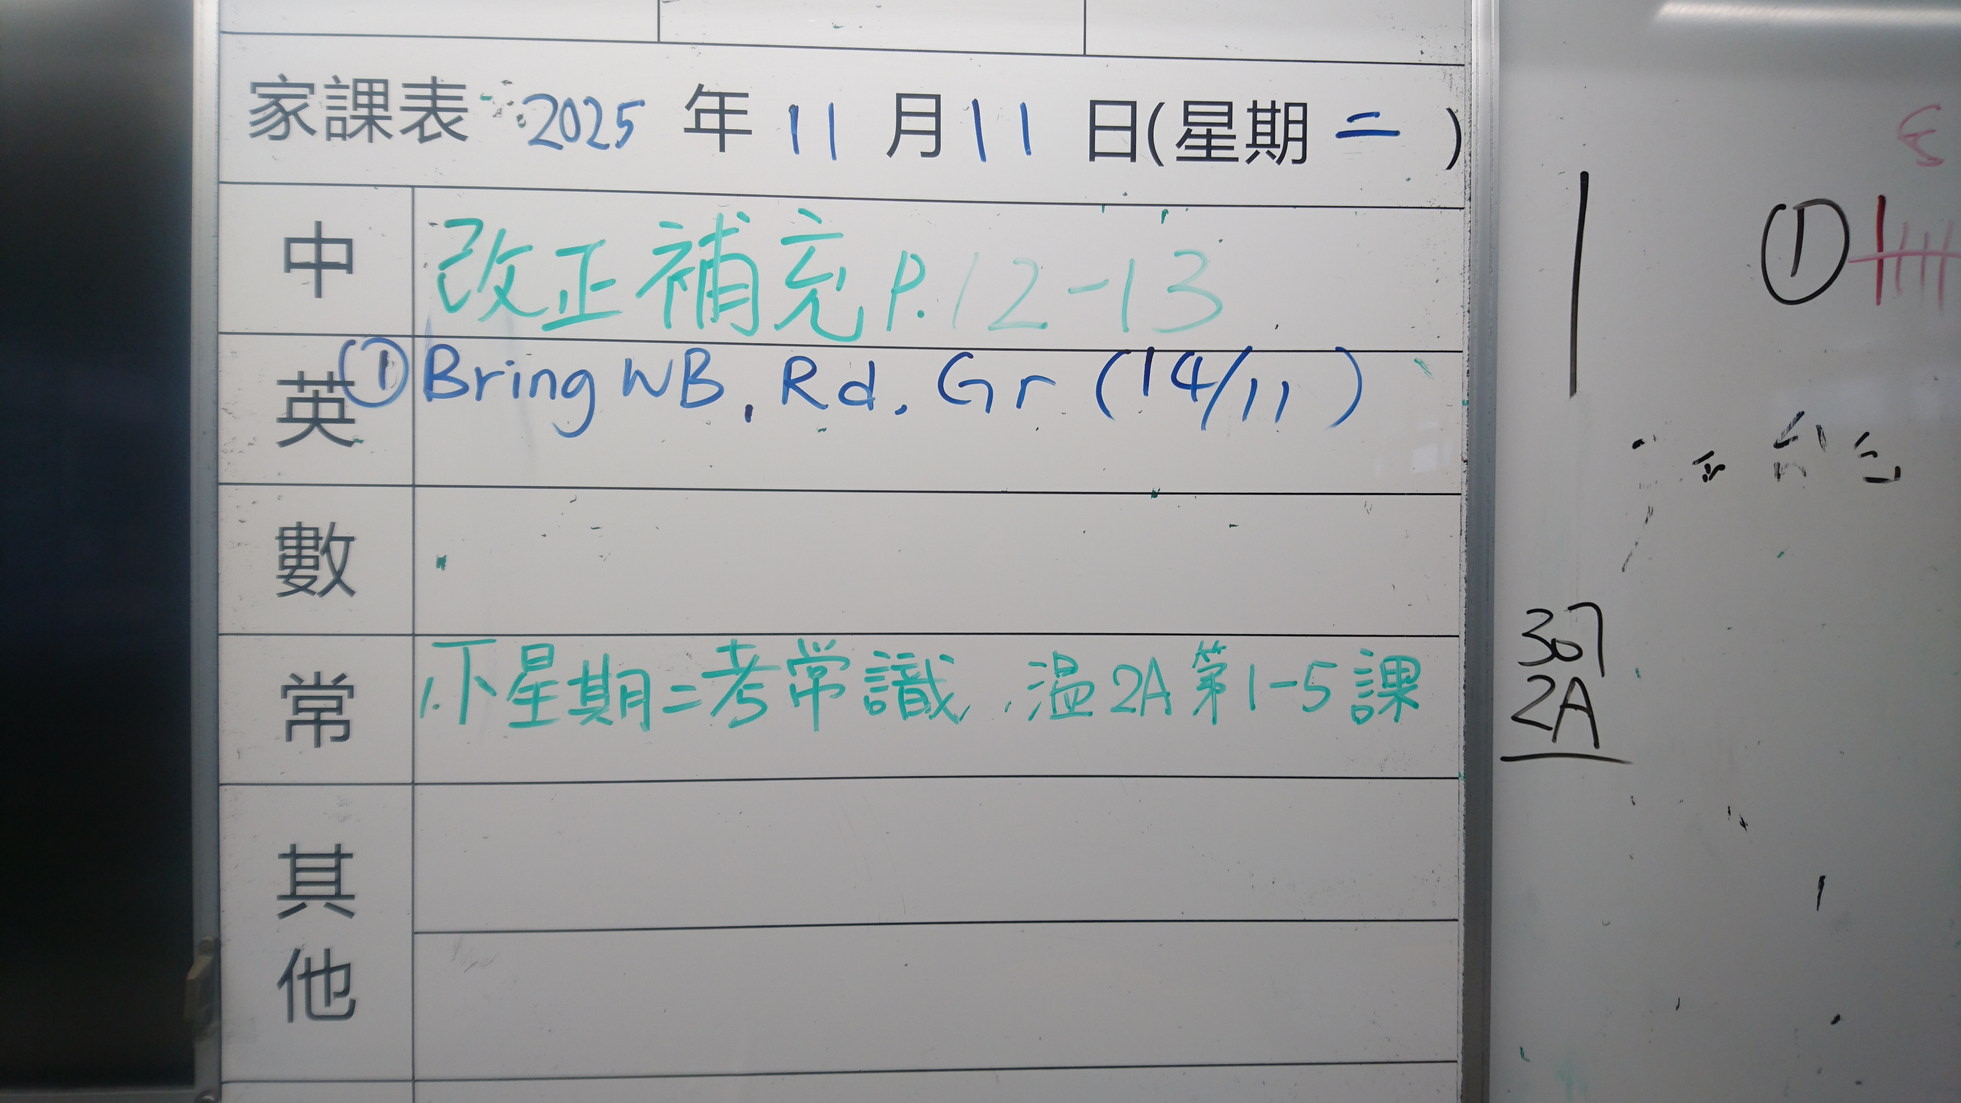 家課表 2025 年 11 月 11 日(星期二)
中 改正補充 P.12-13
英 ① Bring WB, Rd, Gr (14/11)
數
常 1.下星期二考常識, 溫2A第1-5課
其他
①
307
2A